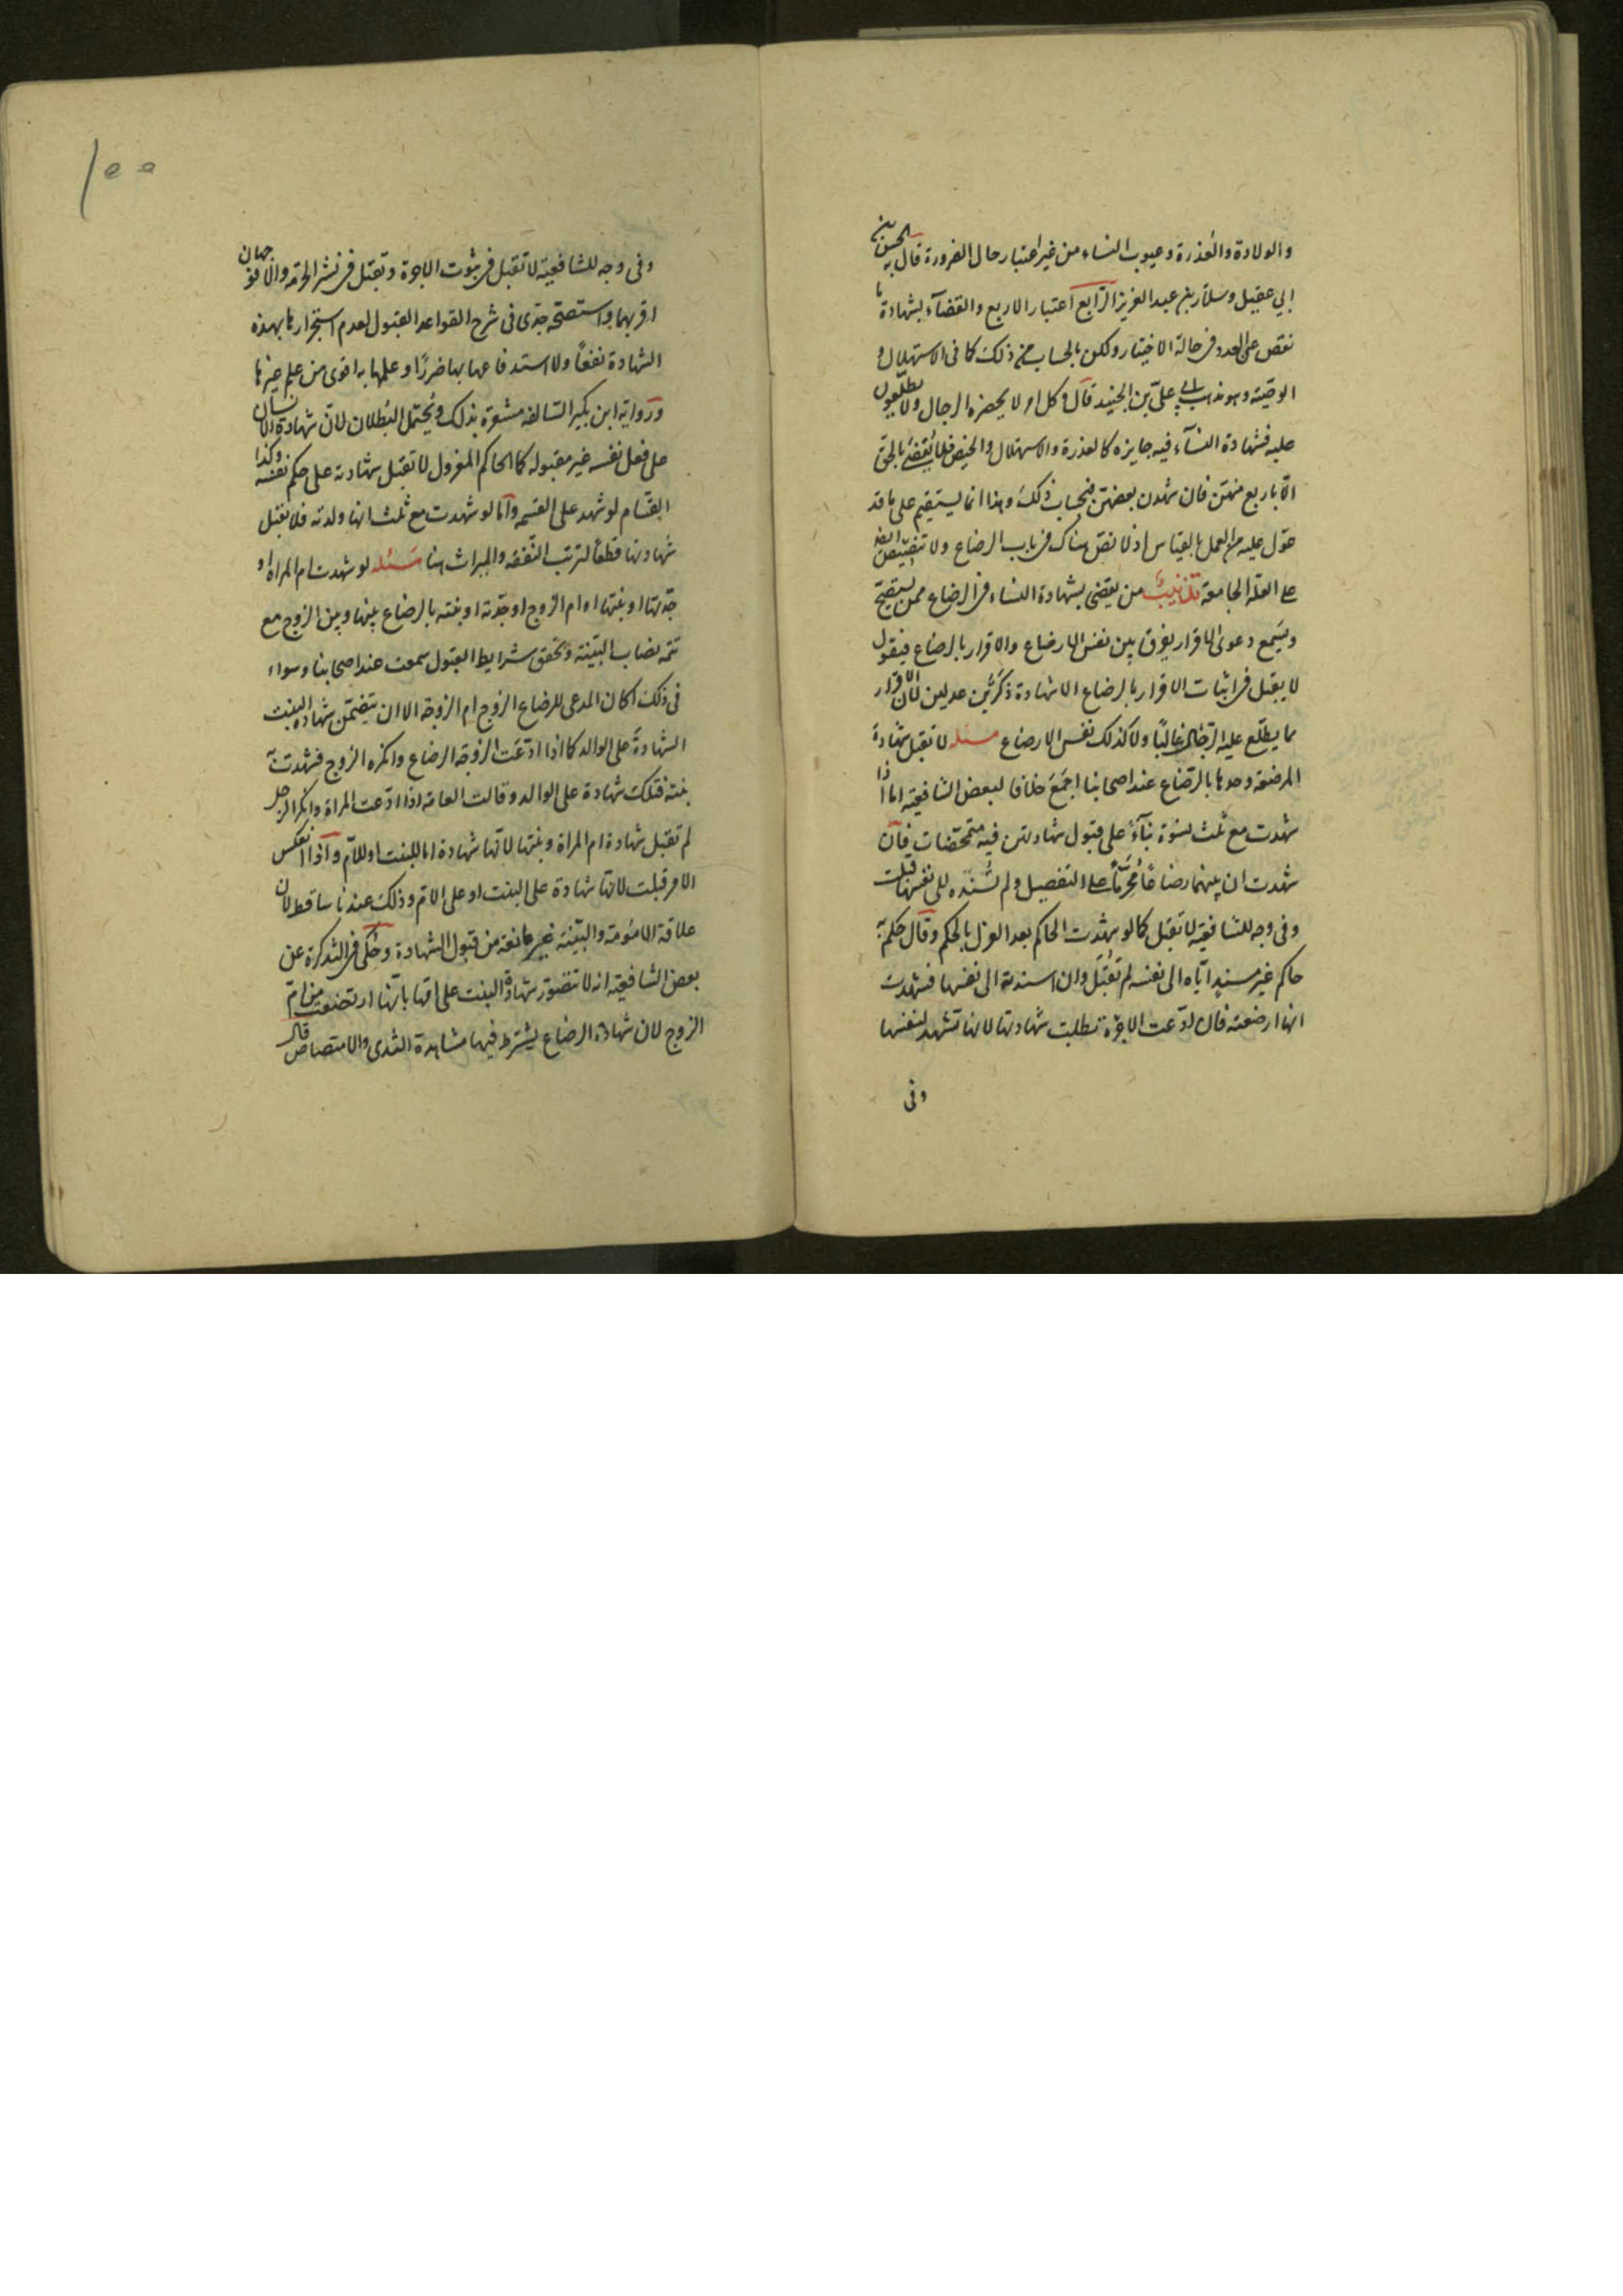 والولادة والعذرة وعيوب النساء من غير اعتبار حال الضرورة قال به الحسن بن
ابي عقيل وسلار بن عبد العزيز الرابع اعتبار الاربع والقضاء بشهادة ما
نقص عن العدد في حالة الاختيار ولكن بالحساب من ذلك كما في الاستهلال و
الوصية وهو مذهب ابي علي بن الجنيد قال وكل امر لا يحضره الرجال ولا يطلعون
عليه فشهادة النساء فيه جايزه كالعذرة والاستهلال والحيض فلا يقضى بالحق
الا باربع منهن فان شهدن بعضهن فبحساب ذلك وهذا انما يستقيم على ما قد
عول عليه من العمل بالقياس اذ لا نص هناك في باب الرضاع ولا تنصيص ايضا
على العلة الجامعة تذنيب من يقضي بشهادة النساء في الرضاع ممن يستصح
ويسمع دعوى الاقرار يفرق بين نفس الارضاع والاقرار بالرضاع فيقول
لا يقبل في اثبات الاقرار بالرضاع الا شهادة ذكرين عدلين لان الاقرار
مما يطلع عليه الرجال غالبا ولا كذلك نفس الارضاع مسئله لا تقبل شهادة
المرضعة وحدها بالرضاع عند اصحابنا اجمع خلافا لبعض الشافعية اما اذا
شهدت مع ثلث نسوة بناء على قبول شهادتهن فيه متمحضات فان
شهدت ان بينهما رضاعا محرما على التفصيل ولم تسنده الى نفسها قبلت
وفي وجه للشافعية لا تقبل كما لو شهدت الحاكم بعد العزل بالحكم وقال حكم به
حاكم غير مسند اياه الى نفسه لم تقبل وان اسندته الى نفسها فشهدت
انها ارضعته فان ادعت الاجرة بطلت شهادتها لانها تشهد لنفسها
وفى
١٥٥
وفى وجه للشافعية لا تقبل في ثبوت الاجرة وتقبل في نشر الحرمة والا فوجهان
اقربهما واستصحه جدى فى شرح القواعد القبول لعدم استجرارها بهذه
الشهادة نفعا ولا استدفاعها بها ضررا وعلمها به اقوى من علم غيرها
ورواية ابن بكير السالفه مشعرة بذلك ويحتمل البطلان لان شهادة الانسان
على فعل نفسه غير مقبوله كالحاكم المعزول لا تقبل شهادته على حكم نفسه وكذا
القسام لو شهد على القسمه واما لو شهدت مع ثلث انها ولدته فلا تقبل
شهادتها قطعا لترتب النفقه والميراث هنا مسئله لو شهدت ام المراة او
جدتها او بنتها او ام الزوج او جدته او بنته بالرضاع بينها وبين الزوج مع
تتمه نصاب البينه وتحقق شرايط القبول سمعت عند اصحابنا وسواء
فى ذلك اكان المدعى للرضاع الزوج ام الزوجة الا ان يتضمن شهاده البنت
الشهادة على الوالد كما اذا ادعت الزوجة الرضاع وانكره الزوج فشهدت به
بنته فتلك شهادة على الوالد وقالت العامة اذا ادعت المراة وانكر الرجل
لم تقبل شهادة ام المراة وبنتها لانها شهادة اما للبنت او للام واذا انعكس
الامر قبلت لانها شهادة على البنت او على الام وذلك عندنا ساقط لان
علاقة الامومة والبنية غير مانعة من قبول الشهادة وحكى في التذكرة عن
بعض الشافعية انه لا تتصور شهادة البنت على امها بانها ارتضعت من ام
الزوج لان شهادة الرضاع يشترط فيها مشاهدة الثدى والامتصاص قال